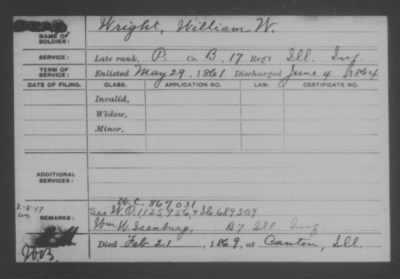 DEAD
NAME OF SOLDIER: Wright, William W.
SERVICE: Late rank, P. Co. B. 17 Reg't Ill. Inf.
TERM OF SERVICE: Enlisted May 29, 1861 Discharged June 4, 1864
DATE OF FILING. CLASS. APPLICATION NO. LAW. CERTIFICATE NO.
Invalid,
Widow,
Minor,
ADDITIONAL SERVICES:
W.C. 867031
3-5-17
REMARKS: See W.O. 1125956 + I.C. 689309
Wm W. Isenburg, B 7 Ill Inf.
Died Feb 21, 1869, at Canton, Ill.